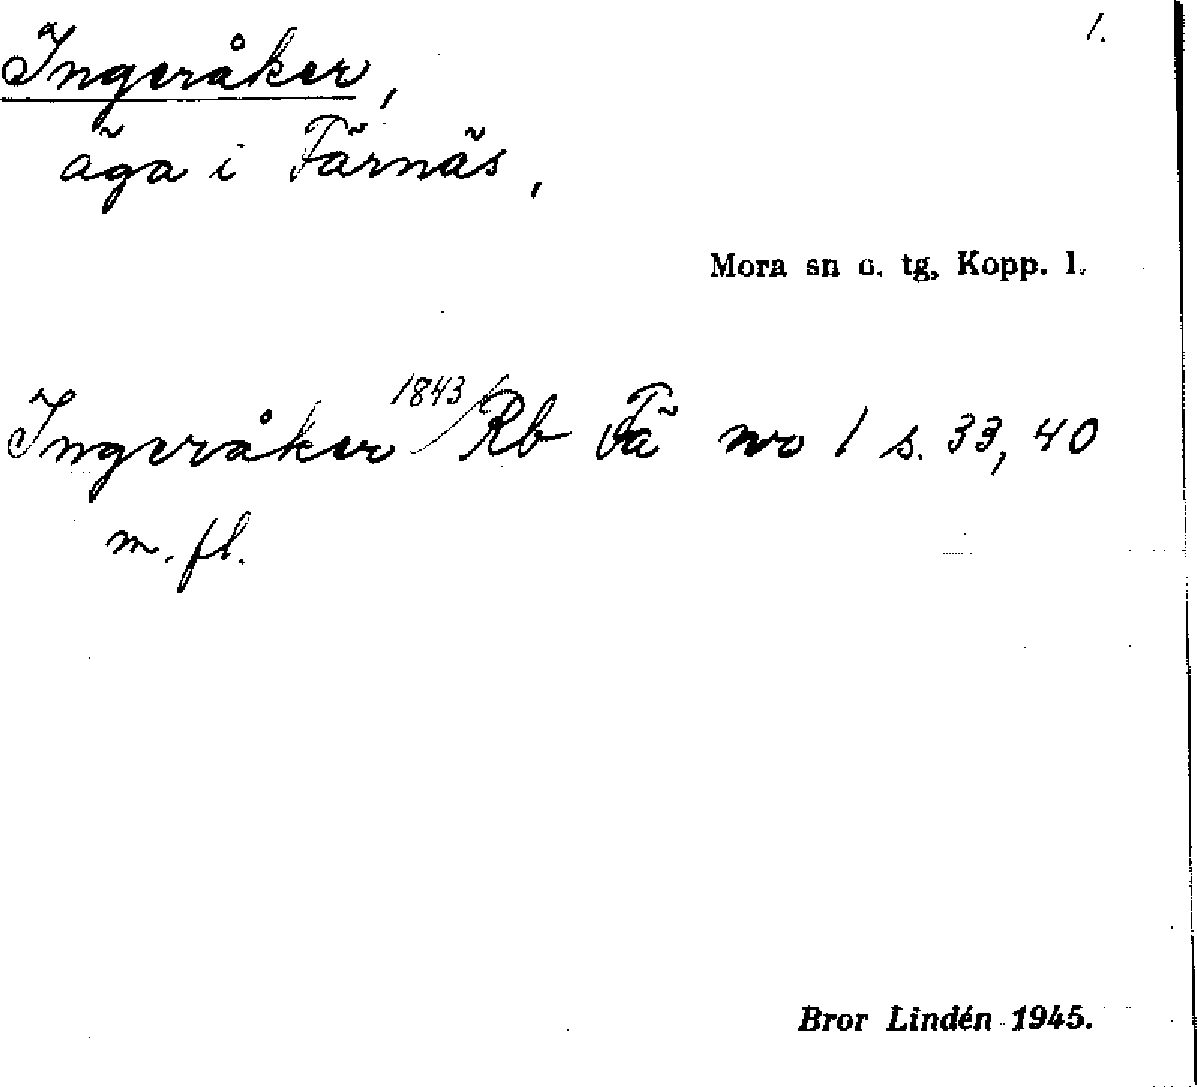 1.
Ingeråker,
äga i Färnäs,
Mora sn o. tg, Kopp. l.
Ingeråker 1843 Rb Fä nro 1 s. 33, 40
m. fl.
Bror Lindén 1945.